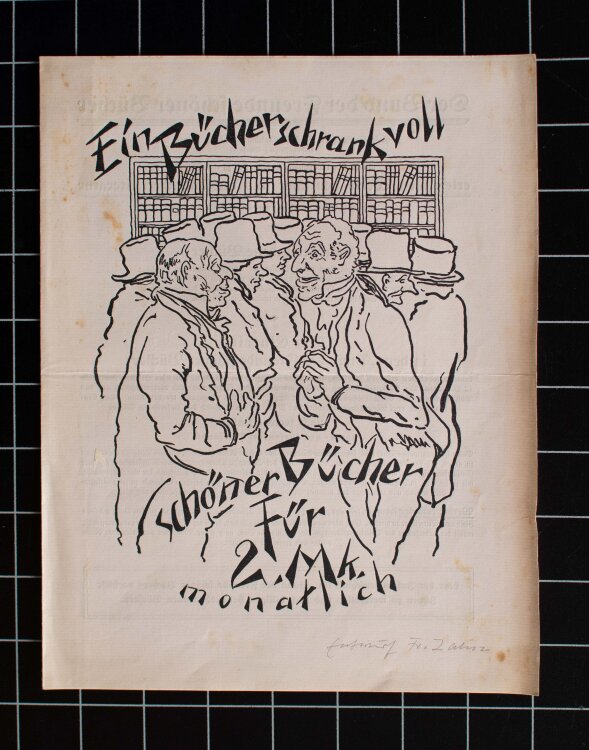 Ein Bücherschrank voll
schöner Bücher
für
2. Mk.
monatlich
Entwurf Fr.